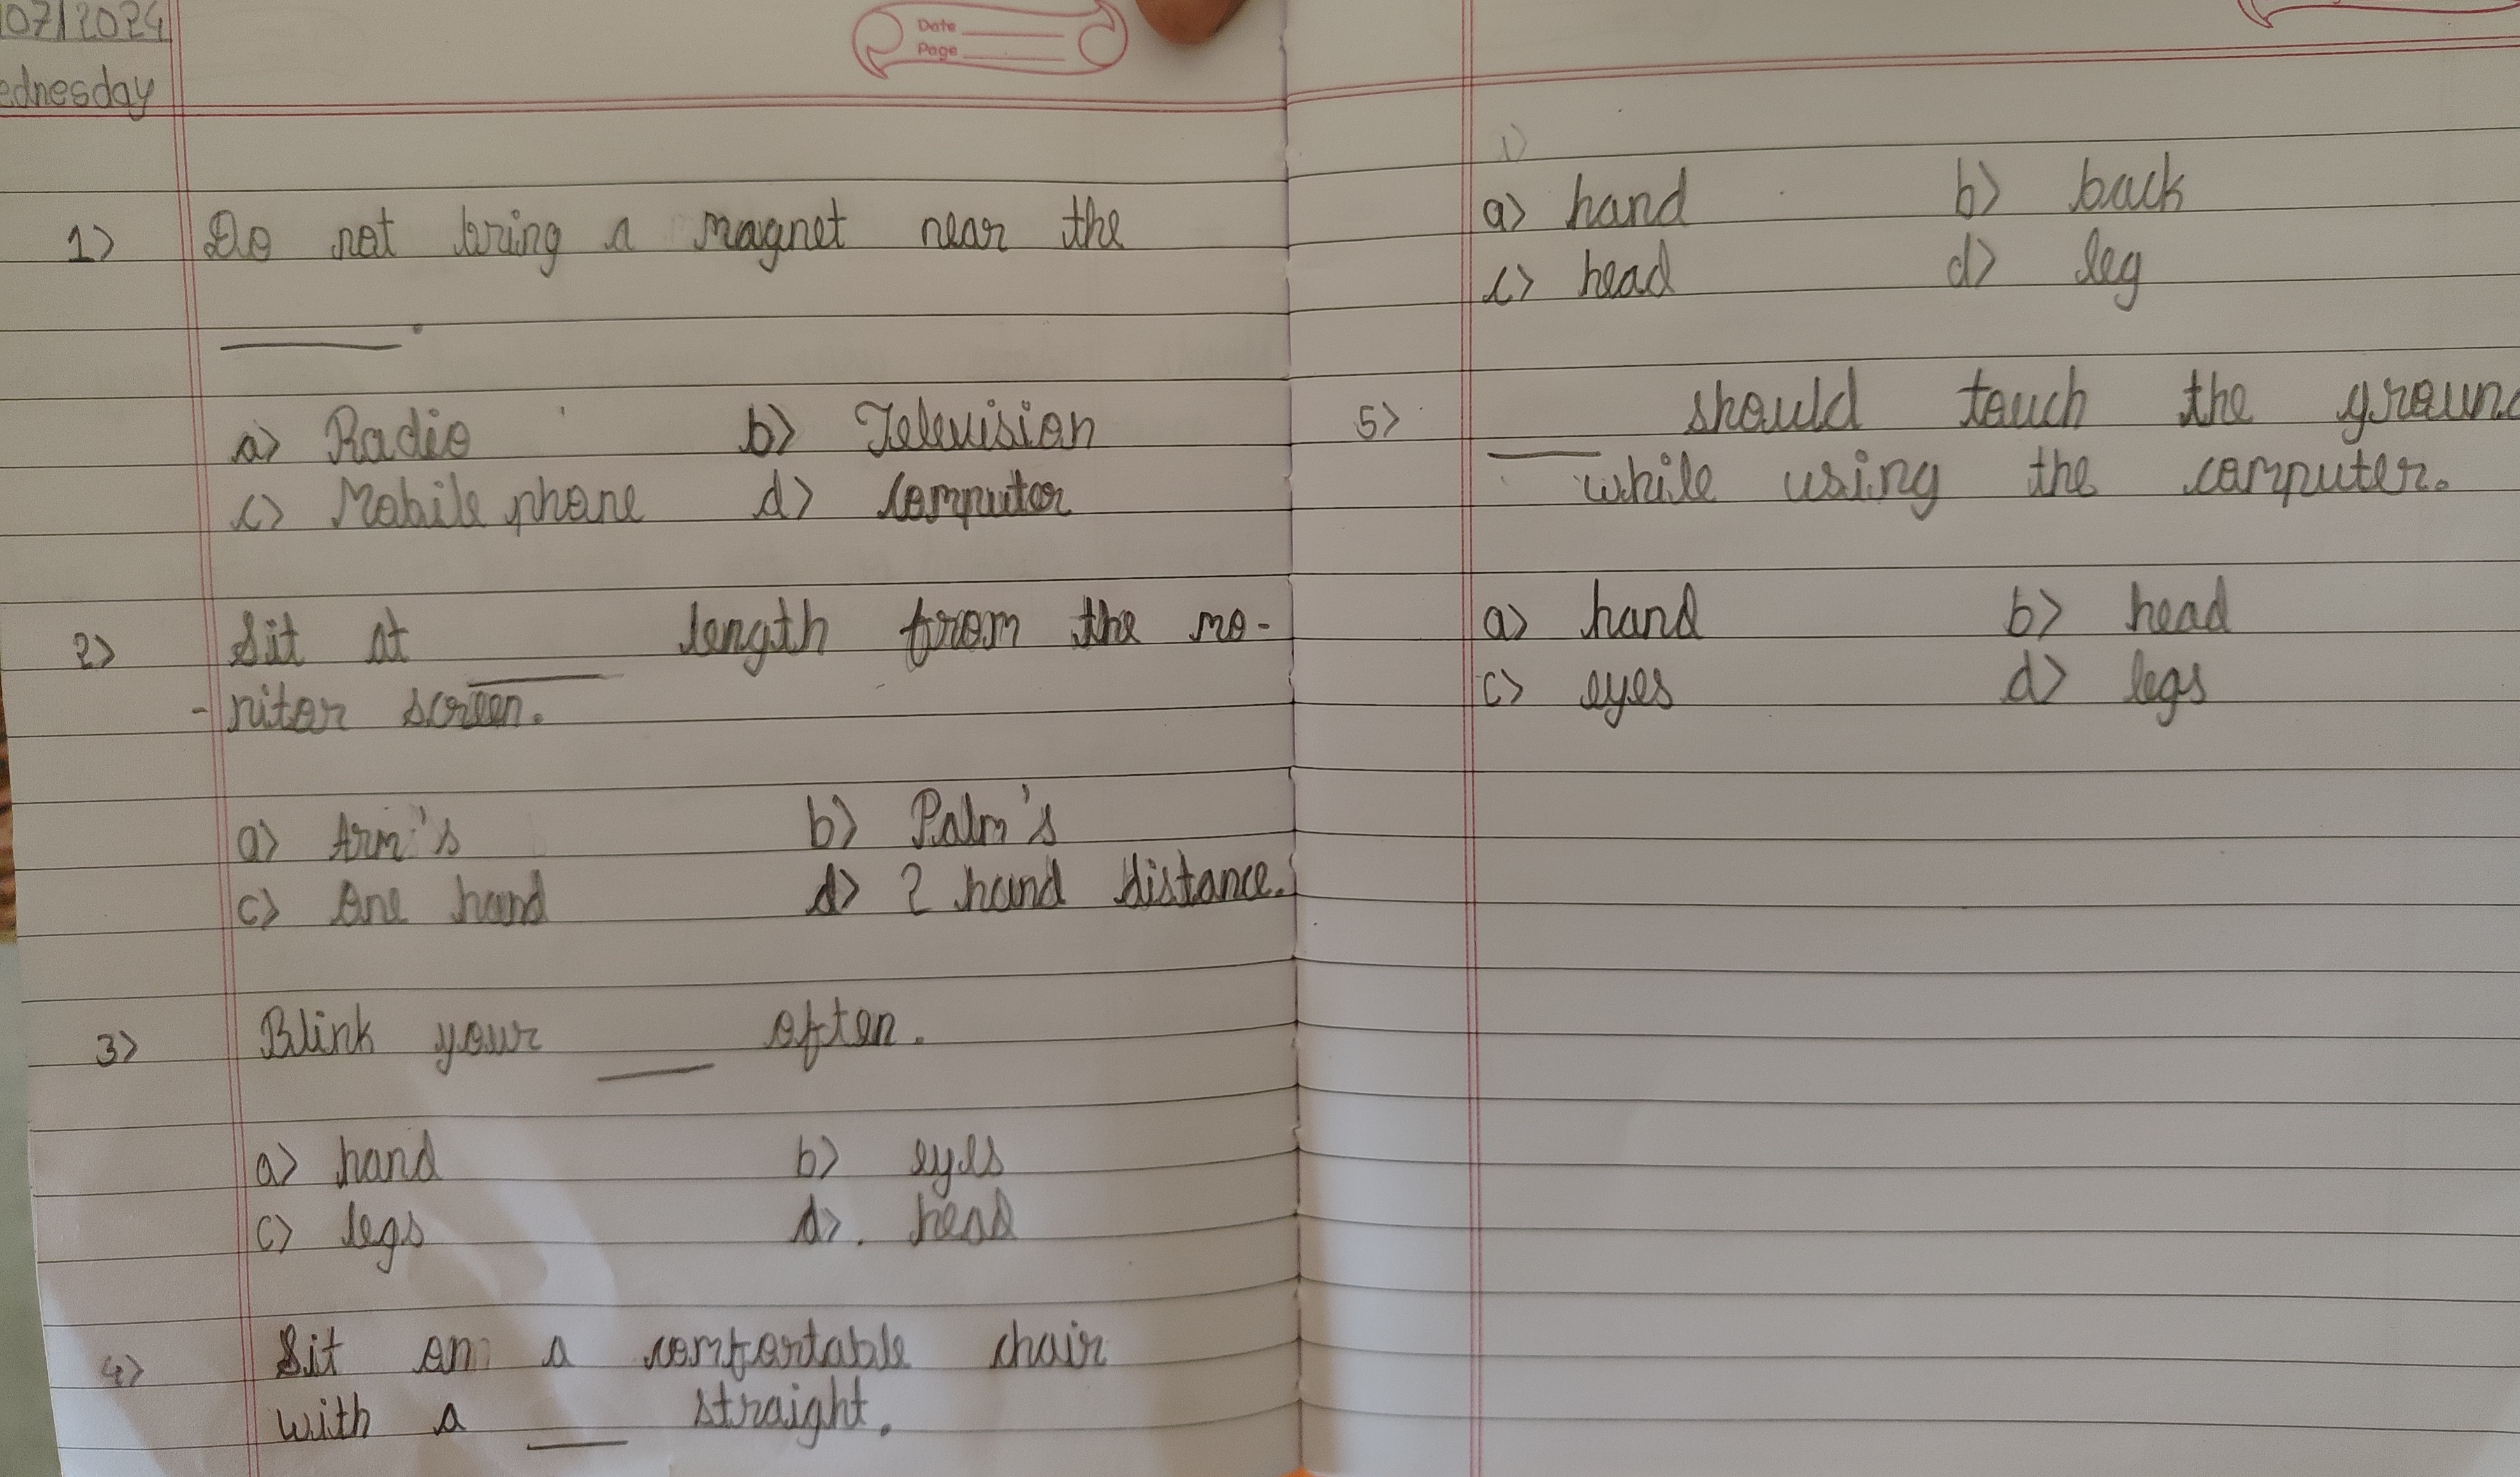 07/2024
ednesday
Date
Page
1) Do not bring a magnet near the
______.
a) Radio b) Television
c) Mobile phone d) computer
2) Sit at ______ length from the mo-
-nitor screen.
a) Arm's b) Palm's
c) One hand d) 2 hand distance.
3) Blink your ____ often.
a) hand b) eyes
c) legs d). head
4) Sit on a comfortable chair
with a ____ straight.
a) hand b) back
c) head d) leg
5) ____ should touch the groun
while using the computer.
a) hand b) head
c) eyes d) legs